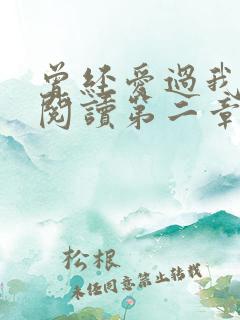 曾經愛過我
閱讀第二章
松根
未经同意禁止转载